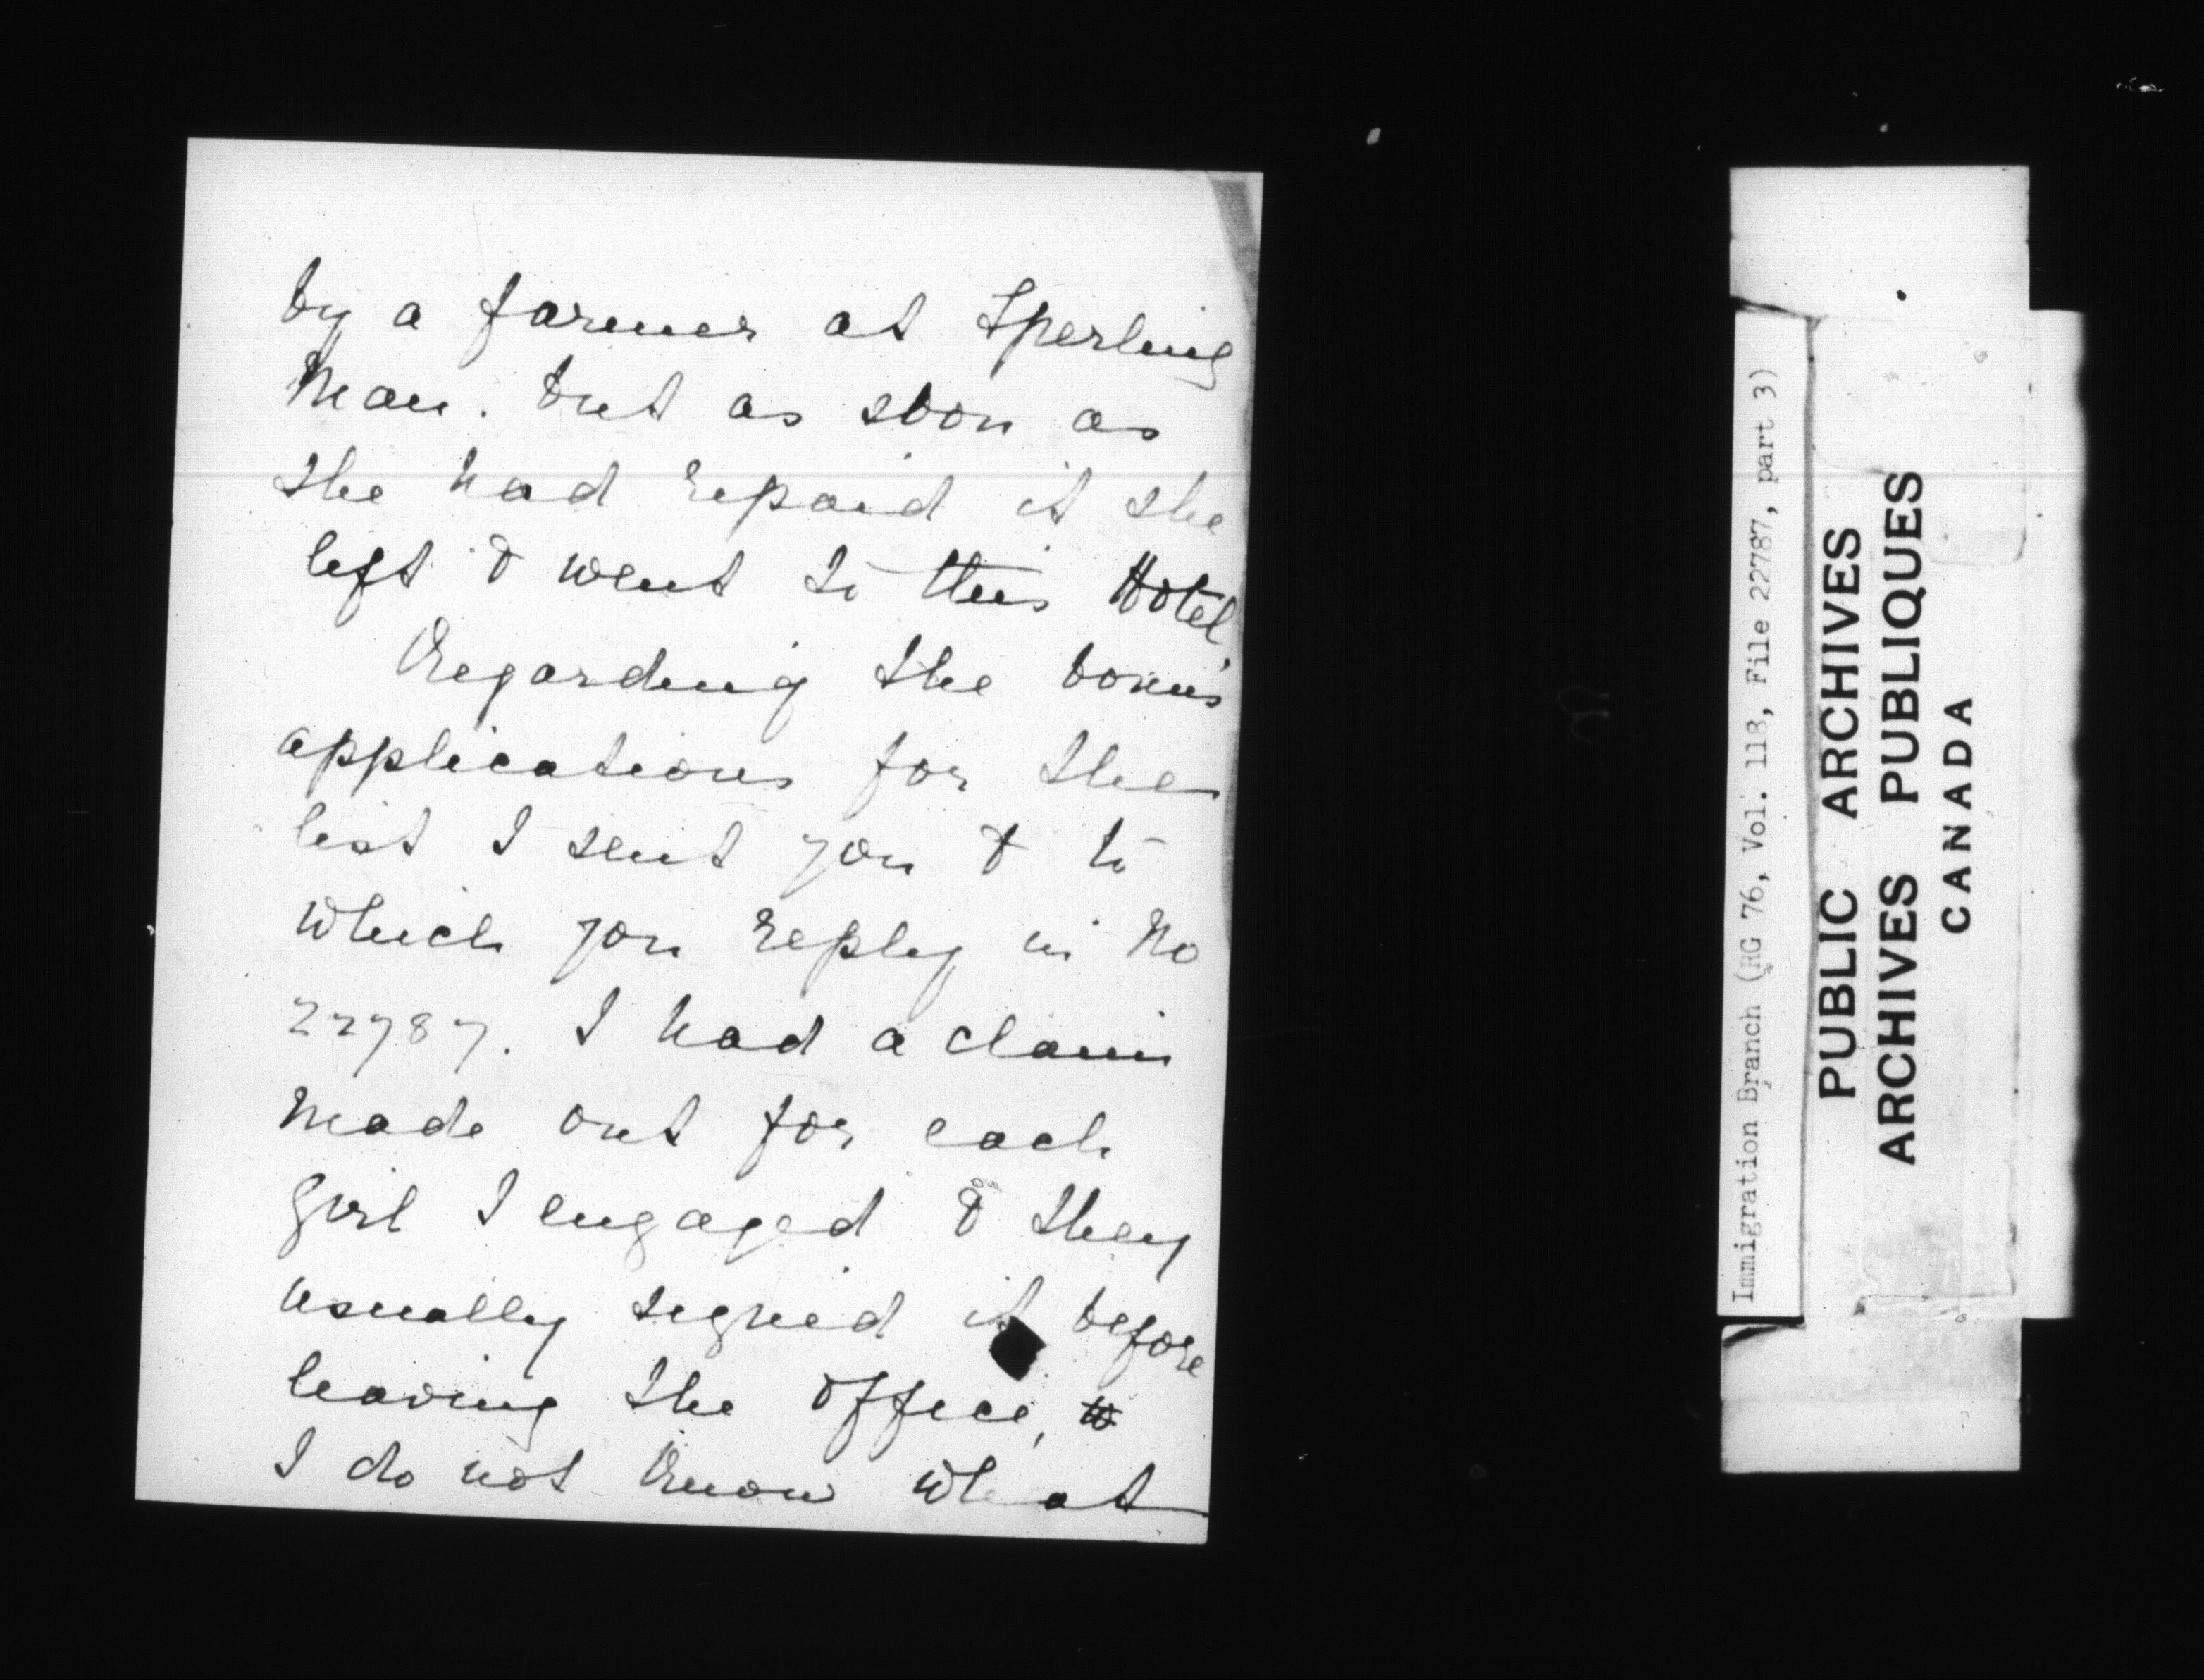 by a farmer at Sperling
Man. but as soon as
she had repaid it she
left & went to this Hotel.
Regarding the bonus
applications for the
list I sent you & to
which you reply in No
22787. I had a claim
made out for each
girl I engaged & they
usually signed it before
leaving the office,
I do not know what
Immigration Branch (RG 76, Vol. 118, File 22787, part 3)
PUBLIC ARCHIVES
ARCHIVES PUBLIQUES
CANADA